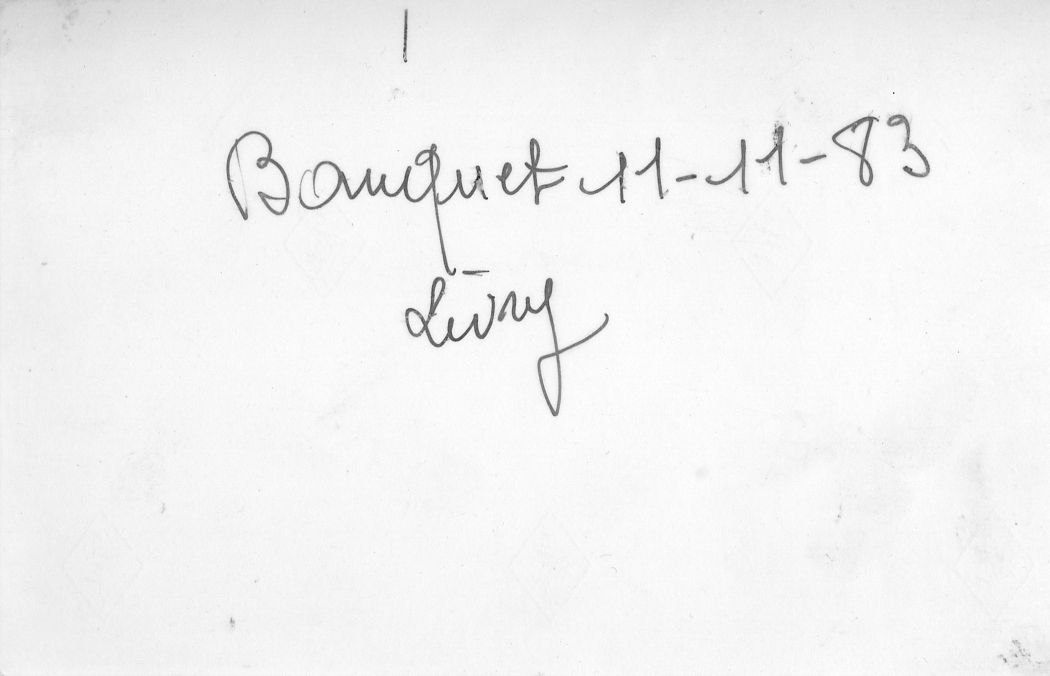 Banquet 11-11-83
Livry